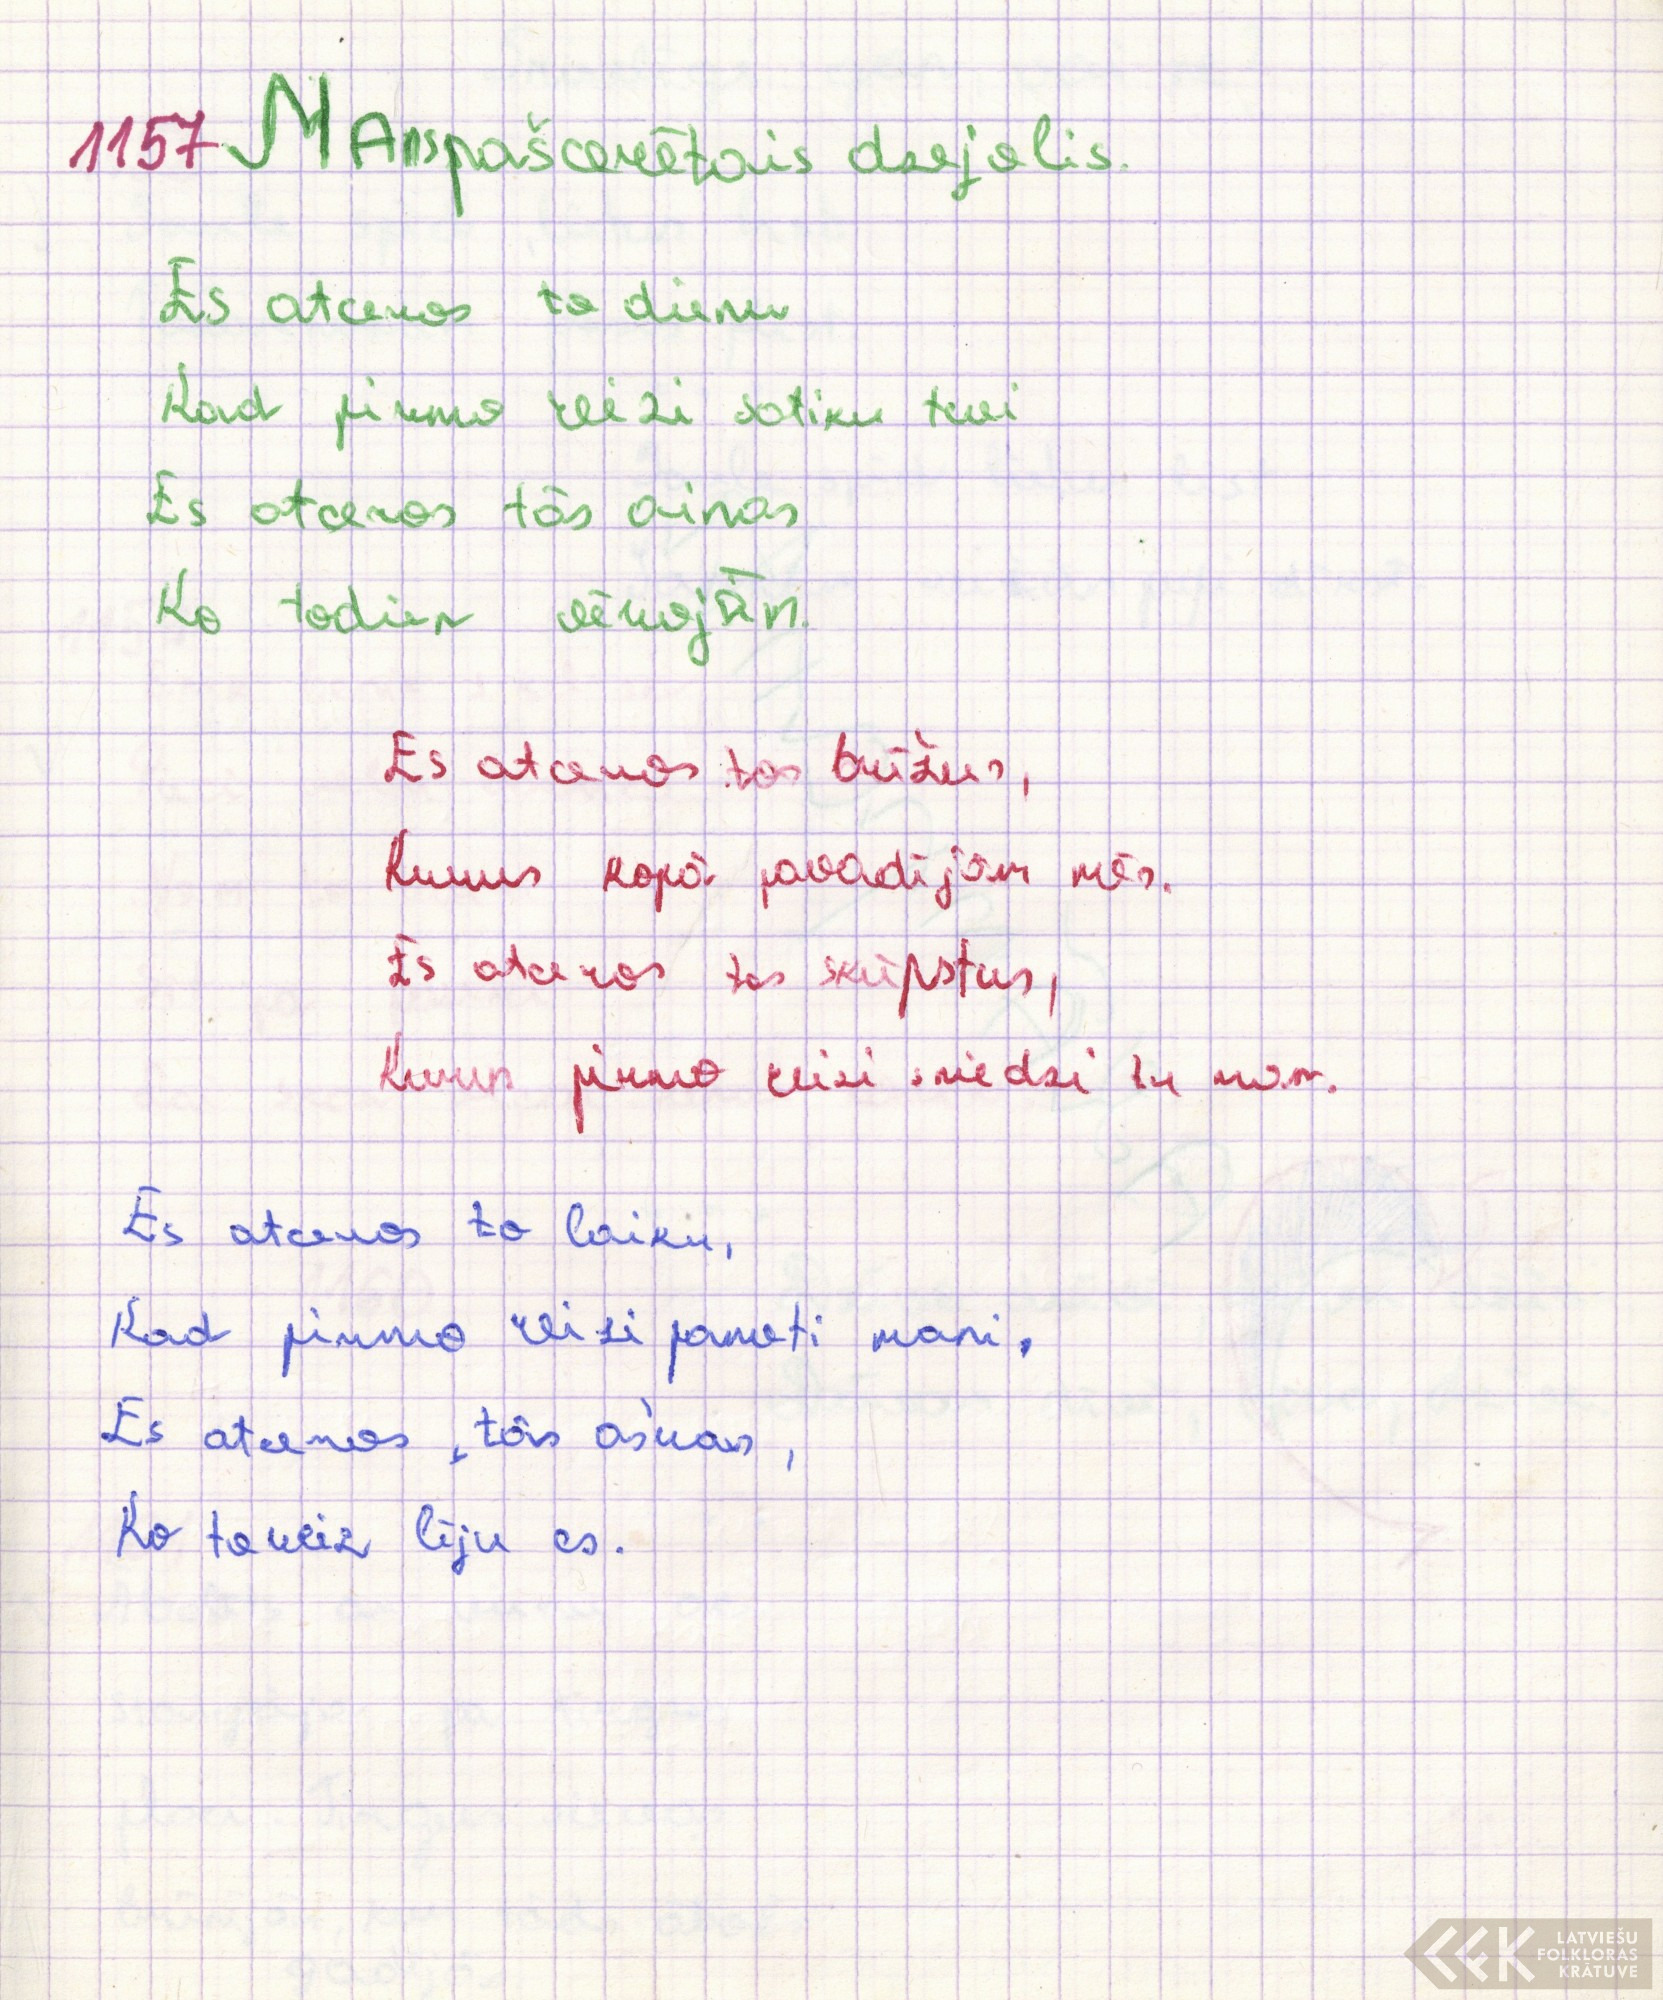 1157 Manspašcerētais dzejolis.
Es atceros to dienu
Kad pirmo reizi satiku tevi
Es atceros tās ainas
Ko todien vērojām.
Es atceros tos brīžus,
Kurus kopā pavadījām mēs.
Es atceros tos skūpstus,
Kurus pirmo reizi sniedzi tu man.
Es atceros to laiku,
Kad pirmo reizi pameti mani,
Es atceros, tās asaras,
Ko toreiz lēju es.
LATVIEŠU
FOLKLORAS
KRĀTUVE